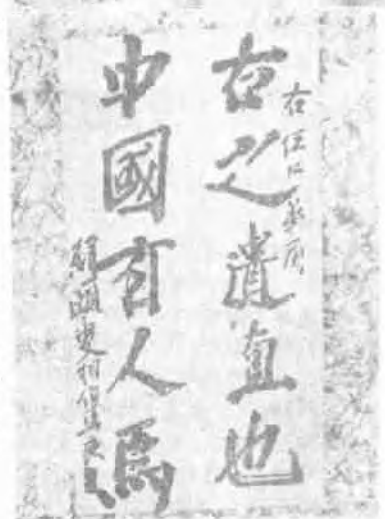 右任仁兄屬
古之遺直也
中國有人焉